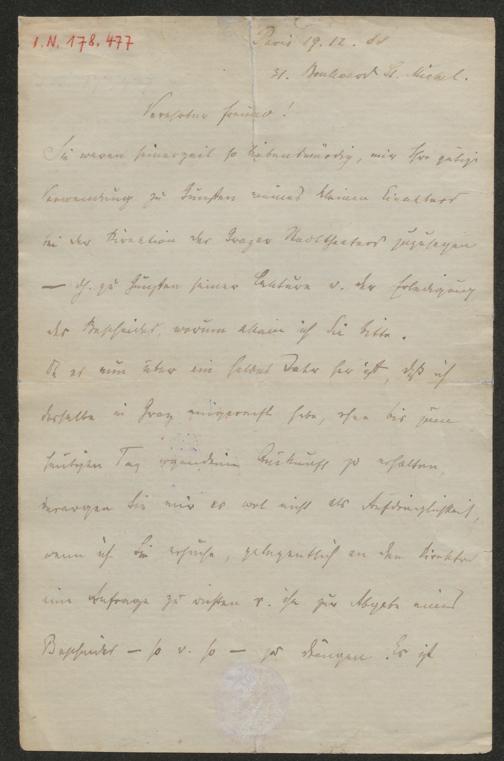 I.N. 178.477
Paris 19. 12. 88
31. Boulevard St. Michel.
Verehrter Freund!
Sie waren seinerzeit so liebenswürdig, mir Ihre gütige
Verwendung zu Gunsten meines kleinen Einakters
bei der Direktion des Stadttheaters zuzusagen
— dh. zu Gunsten seiner Lektüre u. der Erledigung
des Bescheides, worum allein ich Sie bitte.
Da es nun über ein halbes Jahr her ist, daß ich
derselbe in eingereicht habe, ohne bis zum
heutigen Tag irgendeine Auskunft zu erhalten,
verargen Sie mir es wol nicht als Aufdringlichkeit,
wenn ich Sie ersuche, gelegentlich an den Direktor
eine Anfrage zu richten u. ihn zur Abgabe eines
Bescheides — so u. so — zu drängen. Es ist